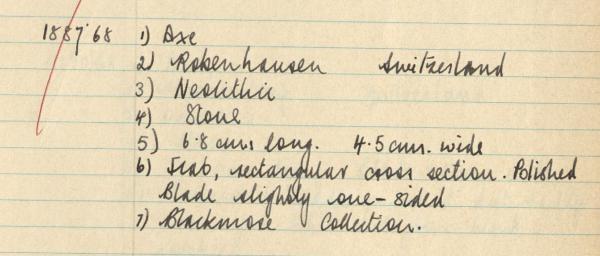 1887·68 1) Axe
2) Robenhausen Switzerland
3) Neolithic
4) Stone
5) 6·8 cms long. 4·5 cms. wide
6) Slab, rectangular cross section. Polished
Blade slightly one-sided
7) Blackmore Collection.